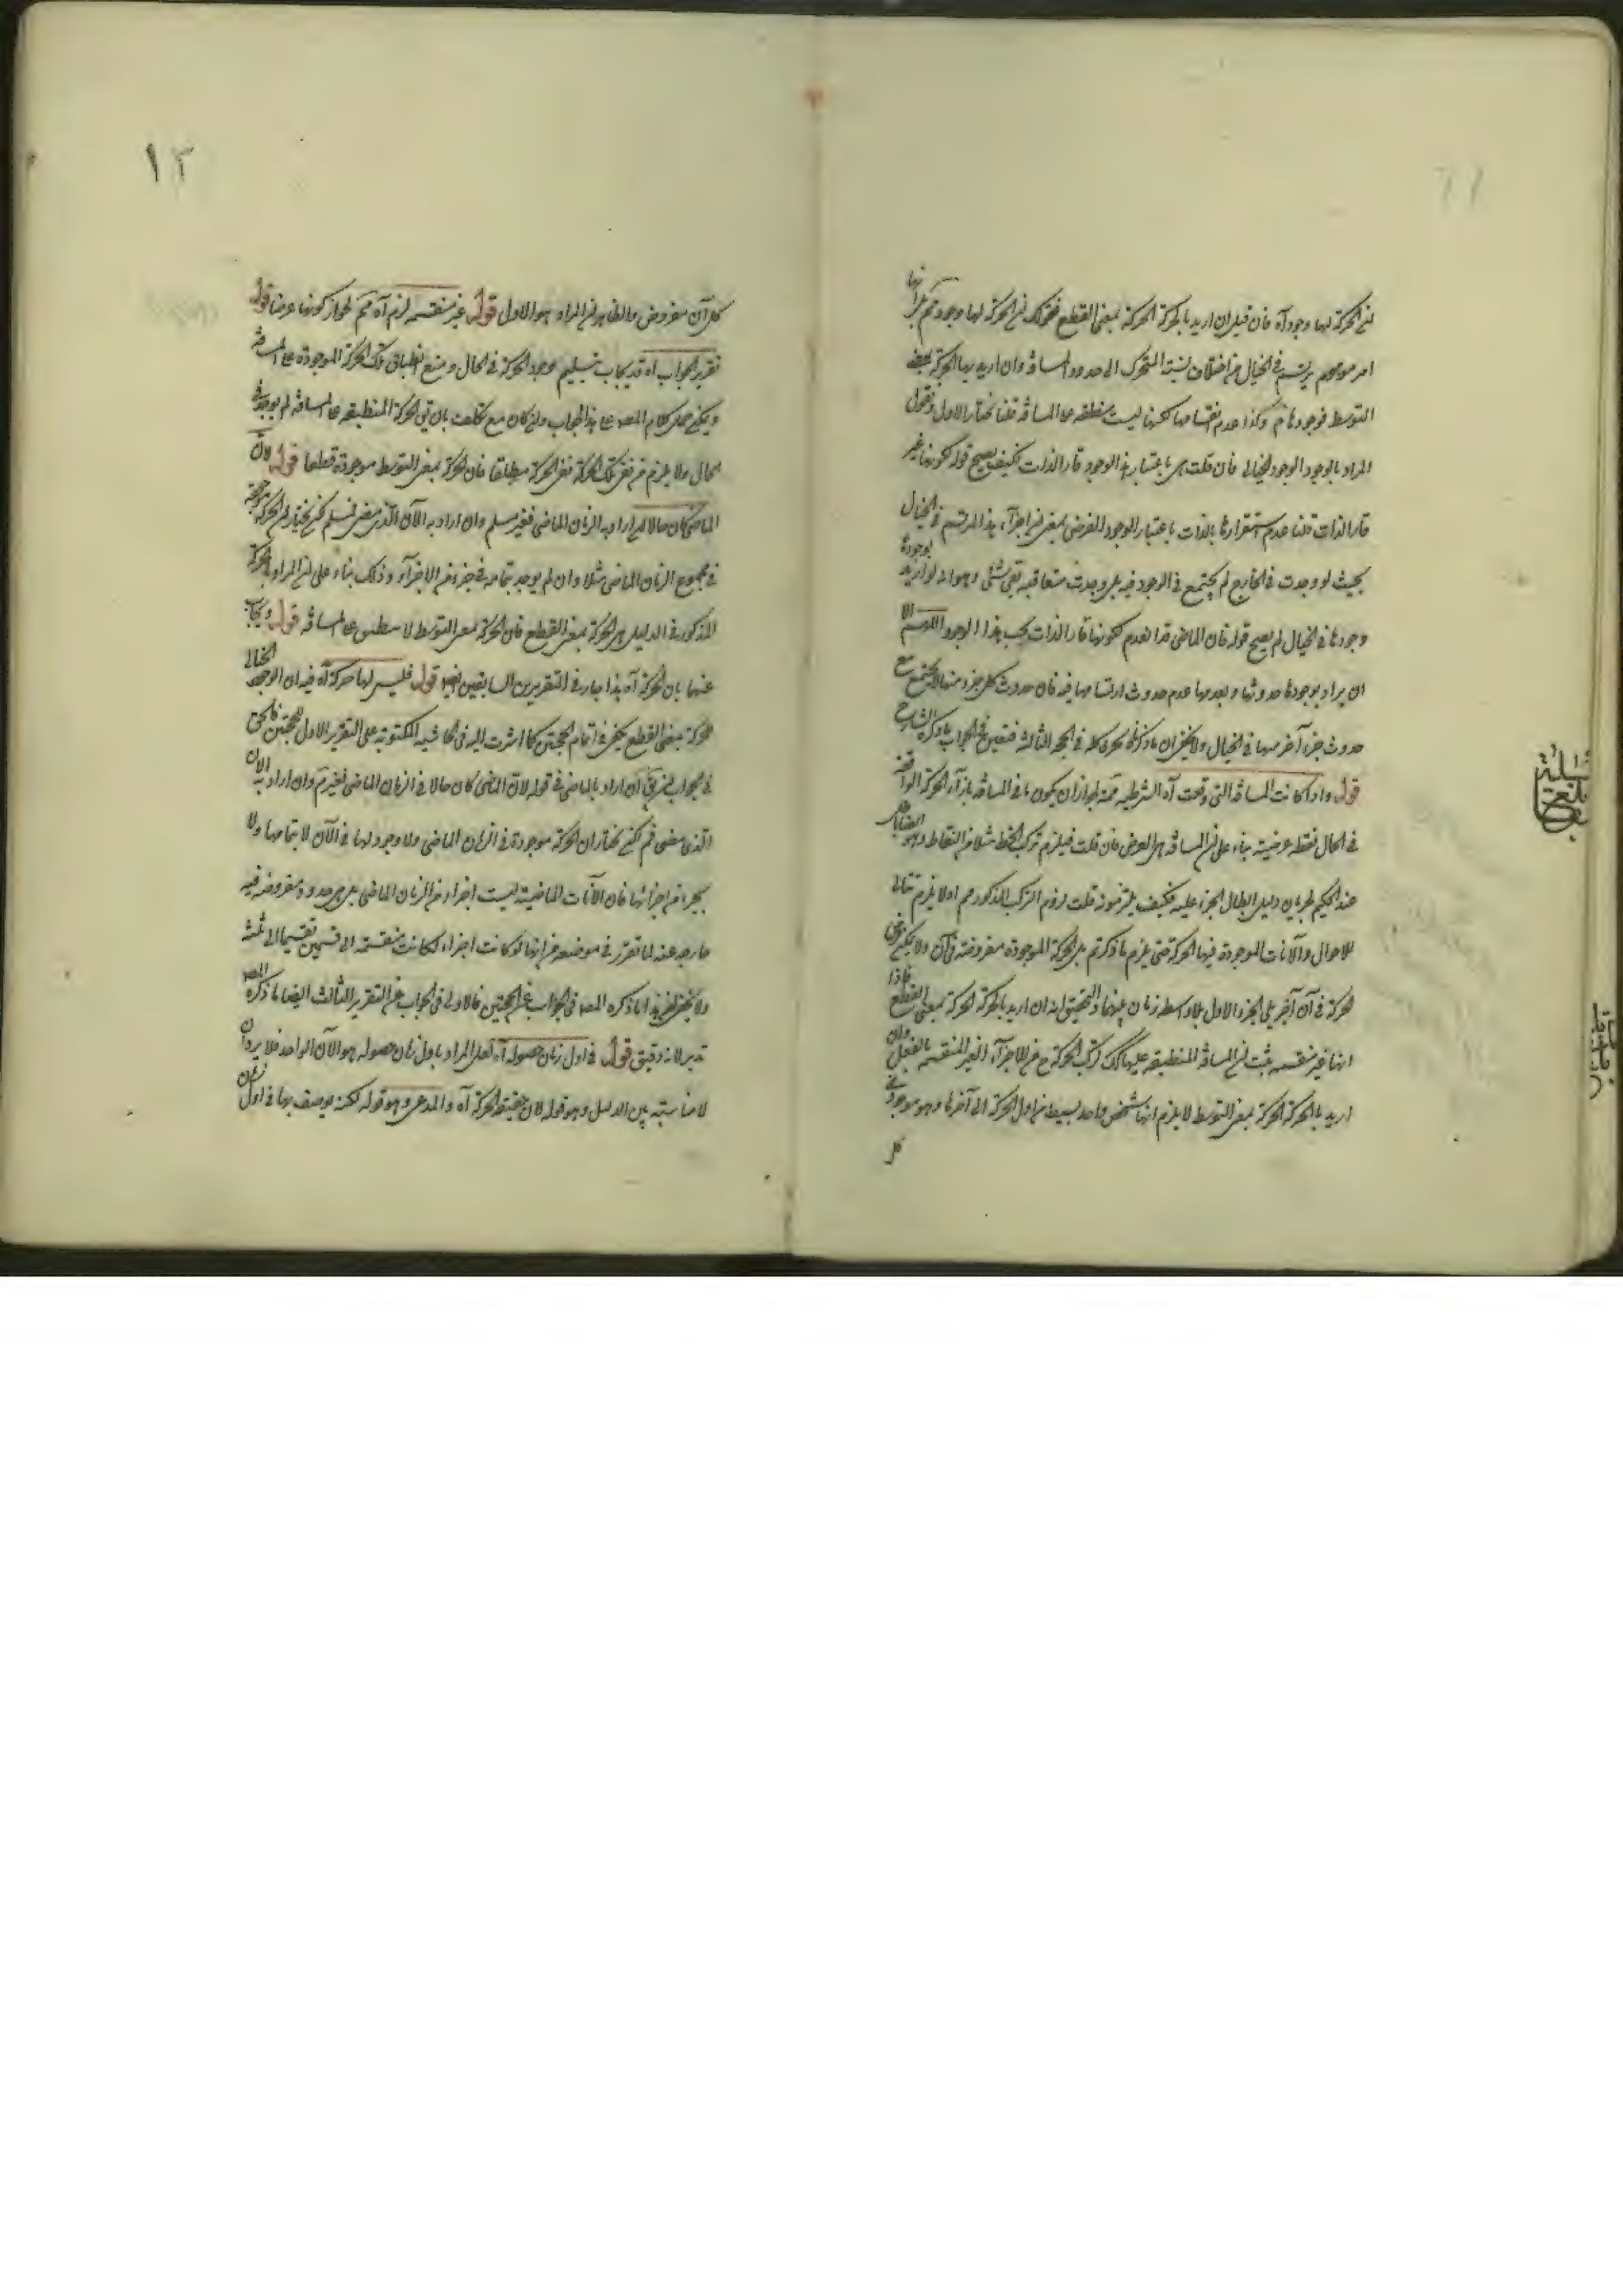 ١١
ان الحركة لها وجود آه فان قيل ان اريد بالحركة الحركة بمعنى القطع فقولك ان الحركة لها وجود
امر موهوم يرتسم في الخيال من اختلاف نسبة المتحرك الى حدود المسافة وان اريد بها الحركة بمعنى
التوسط فوجودها م وكذا عدم انقسامها لكنها ليست منطبقة على المسافة قلنا نختار الاول ونقول
المراد بالوجود الوجود الخيالي فان قلت هي باعتبار هذا الوجود قار الذات فكيف يصح قوله لكونها غير
قار الذات قلنا عدم استقرارها بالذات باعتبار الوجود الفرضي بمعنى ان اجزاء هذا المرتسم في الخيال
بحيث لو وجدت في الخارج لم يجتمع في الوجود فيه بل وجدت متعاقبة بقي شئ وهو انه لو اريد بوجودها
وجودها في الخيال لم يصح قوله فان الماضي قد انعدم لكونها قار الذات بحسب هذا الوجود اللهم الا
ان يراد بوجودها حدوثها وبعدمها عدم حدوث ارتسامها فيه فان حدوث كل جزء منها لا يجتمع مع
حدوث جزء آخر منها في الخيال ولا يخفى ان ما ذكرنا يجرى كله في الحجة الثالثة فتعين في الجواب ما ذكره الشارح
قوله واذا كانت المسافة التي وقعت آه الشرطية ممة لجواز ان يكون ما في المسافة بازاء الحركة الواقعة
في الحال نقطة عرضية بناء على ان المسافة هي العرض فان قلت فيلزم تركب الخط مثلا من النقاط وهو ايضا باطل
عند الحكيم لجريان دليل ابطال الجزء عليه فكيف يلتزمونه قلت لزوم التركب المذكور مم اذ لا يلزم تتالي
الاحوال والآنات الموجودة فيها الحركة حتى يلزم ما ذكرتم بل الحركة الموجودة مفروضة في آن ولا يمكن فرض
الحركة في آن آخر يلي الجزء الاول بلا واسطة زمان بينهما والتحقيق انه ان اريد بالحركة الحركة بمعنى القطع فاذا
انها غير منقسمة يثبت ان المسافة المنطبقة عليها كذلك لتركب الحركة ح من الاجزاء الغير المنقسمة بالفعل وان
اريد بالحركة الحركة بمعنى التوسط لا يلزم انها شخص واحد بسيط من اول الحركة الى آخرها وهو موجود في
كل
١٢
كل آن مفروض والظاهر ان المراد هو الاول قوله غير منقسمة لزم آه مم لجواز كونها عرضا قوله
تقرير الجواب آه قد يجاب بتسليم وجود الحركة في الحال ومنع انطباق تلك الحركة الموجودة على المسافة
ويمكن حمل كلام المصه على هذا الجواب وان كان مع تكلف بان يق الحركة المنطبقة على المسافة لم يوجد في
الحال ولا يلزم من نفي تلك الحركة نفي الحركة مطلقا فان الحركة بمعنى التوسط موجودة قطعا قوله لان
الماضي كان حالا ان اراد به الزمان الماضي فغير مسلم وان اراد به الآن الذي مضى فمسلم لكن نختار ان الحركة موجودة
في مجموع الزمان الماضي مثلا وان لم يوجد بتمامه في جزء من الاجزاء وذلك بناء على ان المراد بالحركة
المذكور في الدليل هي الحركة بمعنى القطع فان الحركة بمعنى التوسط لا تنطبق على المسافة قوله ويجاب
عنها بان الحركة آه هذا جار في التقريرين السابقين ايضا قوله فليس لها حركة آه فيه ان الوجود الخيالي
للحركة بمعنى القطع يكفي في اتمام الحجتين كما اشرت اليه في الحاشية المكتوبة على التقرير الاول للحجتين فالحق
في الجواب ان يق ان اراد بالماضي في قوله لان الماضي كان حالا في الزمان الماضي فغير مم وان اراد به الآن
الذي مضى فم لكن نختار ان الحركة موجودة في الزمان الماضي ولا وجود لها في الآن لا بتمامها ولا
بجزء من اجزائها فان الآنات الماضية ليست اجزاء من الزمان الماضي بل هي حدود مفروضة فيه
خارجة عنه لما تقرر في موضعه من انها لو كانت اجزاء لكانت منقسمة الى قسمين تقسيما الى ثلثة
ولا يخفى ان هذا ما ذكره المصه في الجواب عن الحجتين فالاولى في الجواب عن التقرير الثالث ايضا ما ذكره المصه
تدبر لانه دقيق قوله في اول زمان حصوله آه لعل المراد باول زمان حصوله هو الآن الواحد فلا يرد ان
لا مناسبة بين الدليل وهو قوله لان حقيقة الحركة آه والمدعى وهو قوله لكنه يوصف بها في اول زمان